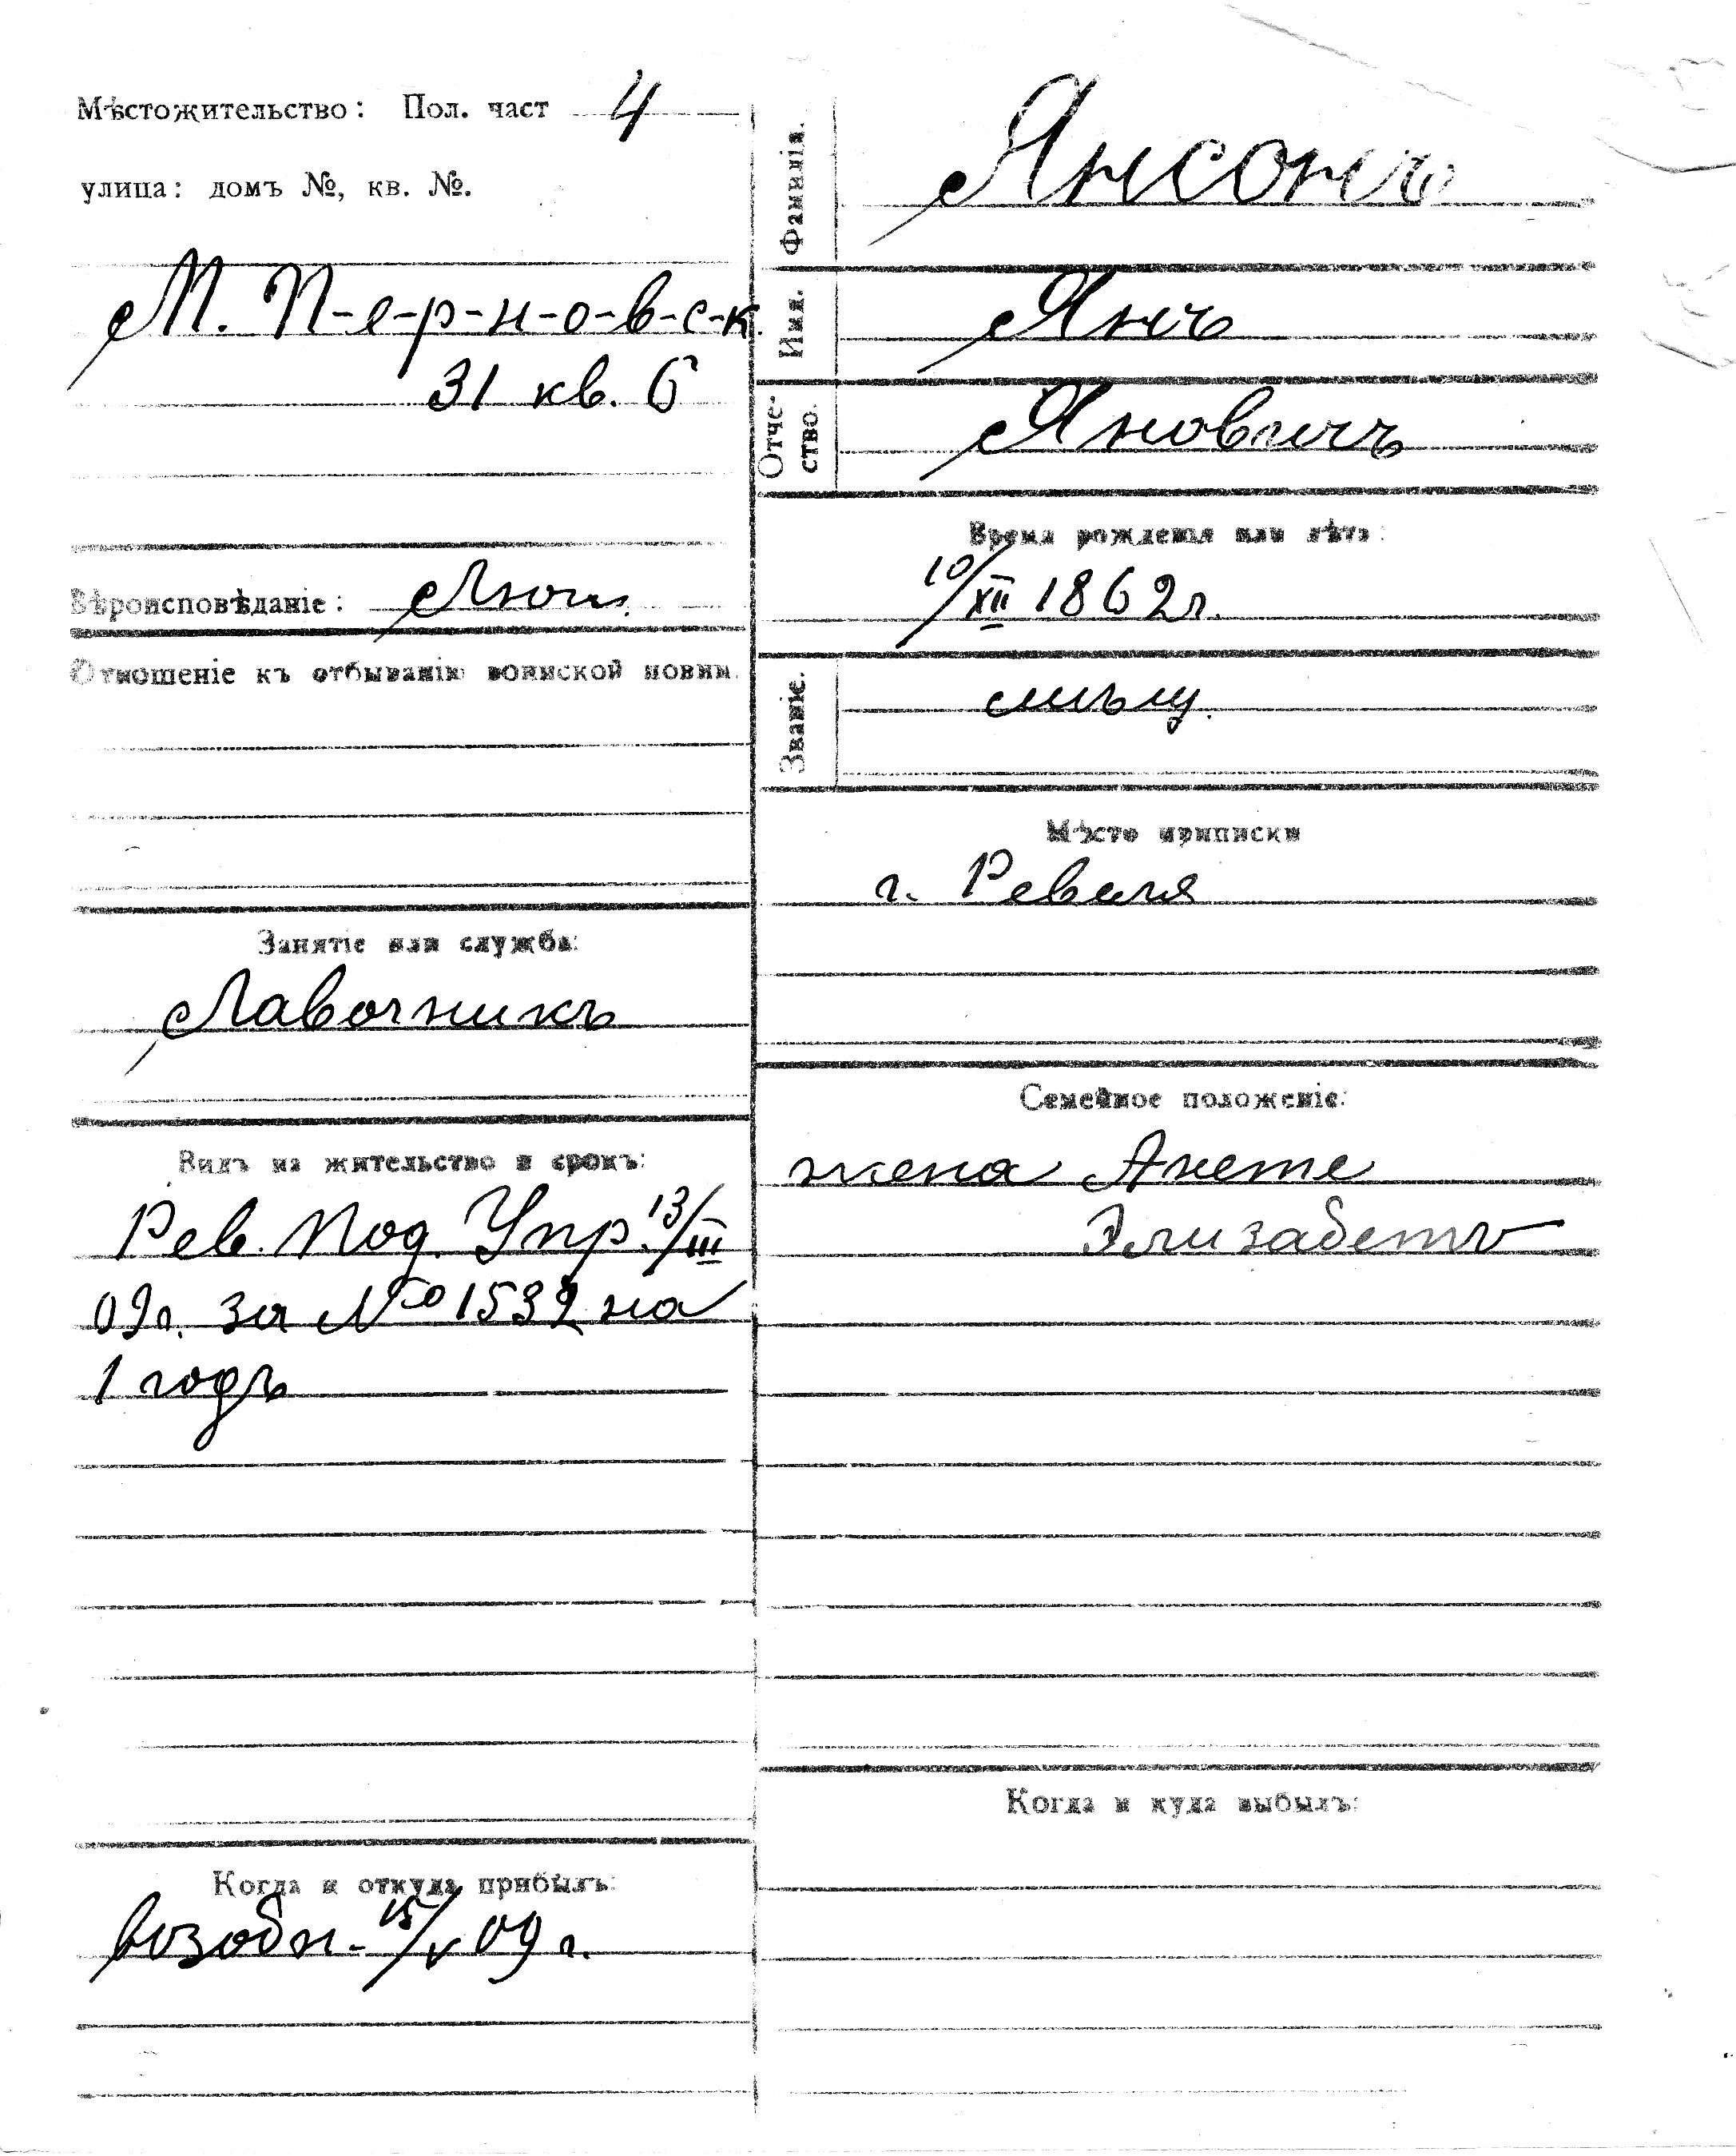 Мѣстожительство: Пол. част 4
улица: домъ №, кв. №.
М. П-е-р-н-о-в-с-к.
31 кв. 6
Вѣроисповѣданіе: Лют.
Отношеніе къ отбыванію воинской повин.
Занятіе или служба:
Лавочникъ
Видъ на жительство и срокъ:
Рев. Под. Упр. 13/III
09г. за № 1532 на
1 годъ
Когда и откуда прибылъ:
возобн. 15/V 09 г.
Фамилія. Янсонъ
Имя. Янъ
Отче-
ство. Яновичъ
Время рожденія или лѣта:
10/XII 1862г.
Званіе. мѣщ.
Мѣсто приписки
г. Ревеля
Семейное положеніе:
жена Анете
Элизабетъ
Когда и куда выбылъ: